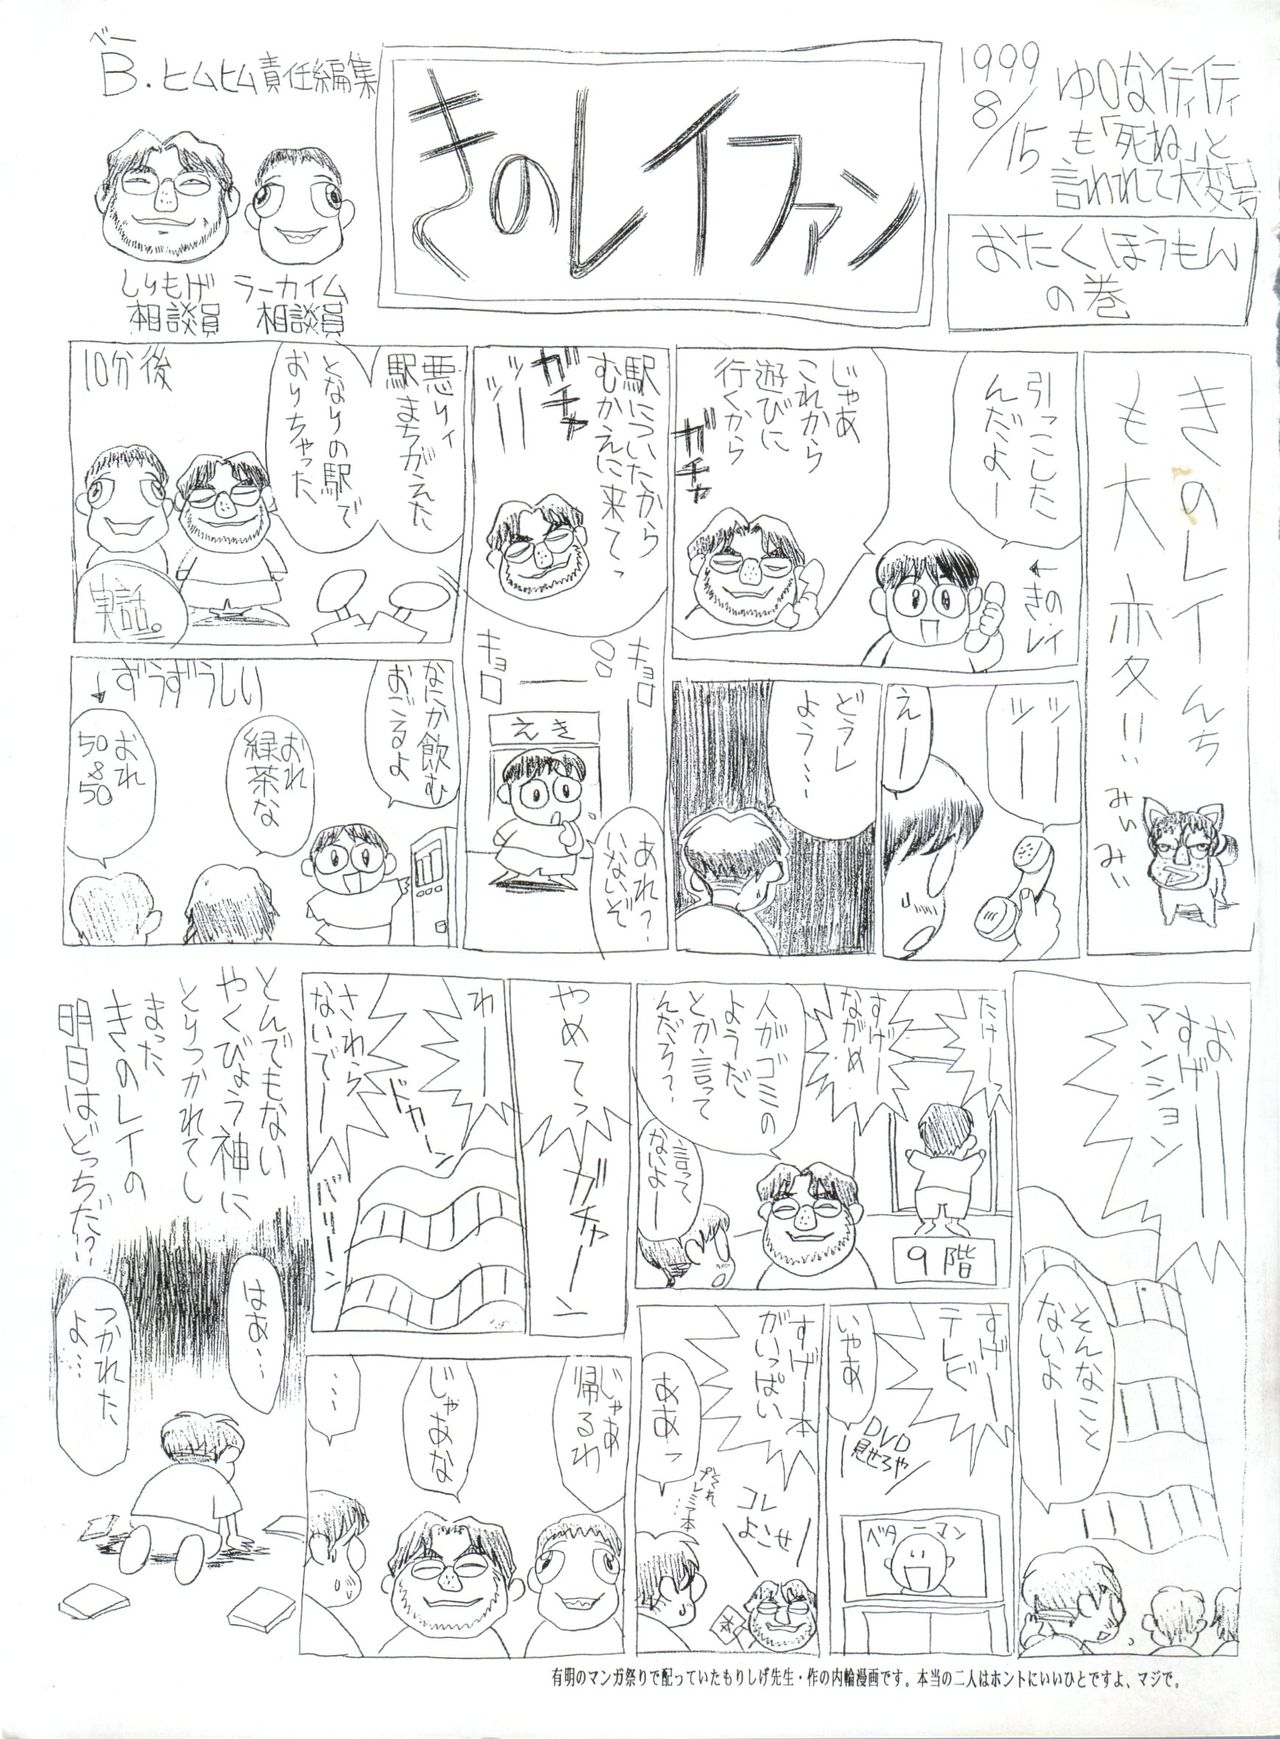 ベー
B.ヒムヒム責任編集
しりもげ
相談員
ラーカイム
相談員
きのレイファン
1999
8/15
も「死ね」と
言われて大変号
おたくほうもん
の巻
きのレイんち
も大変!!
みぃ
みぃ
引っこした
んだよー
←きの・レイ
じゃあ
これから
遊びに
行くから
ガチャ
ツー
ツー
えー
どうし
よう…
駅についたから
むかえに来てっ
ガチャ
ガチャ
ツー
ツー
キョロ
キョロ
えき
あれ?
いないぞ
悪りィ
駅まちがえた
となりの駅で
おりちゃった
10分後
実話。
なにか飲む
おごるよ
おれ
緑茶な
おれ
50&50
↓ずうずうしい
おー
すげー
マンション
そんなこと
ないよー
たけーっ
すげー
ながめ
人がゴミの
ようだ
とか言って
んだろ?
言って
ないよー
9階
すげー
テレビ
いやあ
DVD
見せろや
ベターマン
すげー本
がいっぱい
ああっ
コレ
よこせ
それ
プレミア本…
やめてっ
ガチャーン
わー
ドカーン
さわら
ないでー
バリーン
じゃあ
帰るわ
じゃあな
……
とんでもない
やくびょう神に
とりつかれてし
まった
きのレイの
明日はどっちだ!?
はあ…
つかれた
よ…
有明のマンガ祭りで配っていたもりしげ先生・作の内輪漫画です。本当の二人はホントにいいひとですよ、マジで。